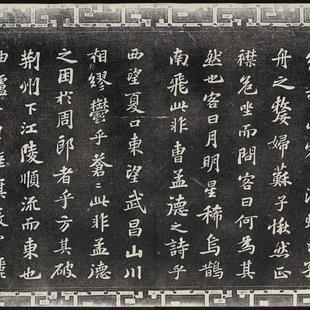 舟之嫠婦蘇子愀然正
襟危坐而問客曰何為其
然也客曰月明星稀烏鵲
南飛此非曹孟德之詩乎
西望夏口東望武昌山川
相繆鬱乎蒼〻此非孟德
之困於周郎者乎方其破
荊州下江陵順流而東也